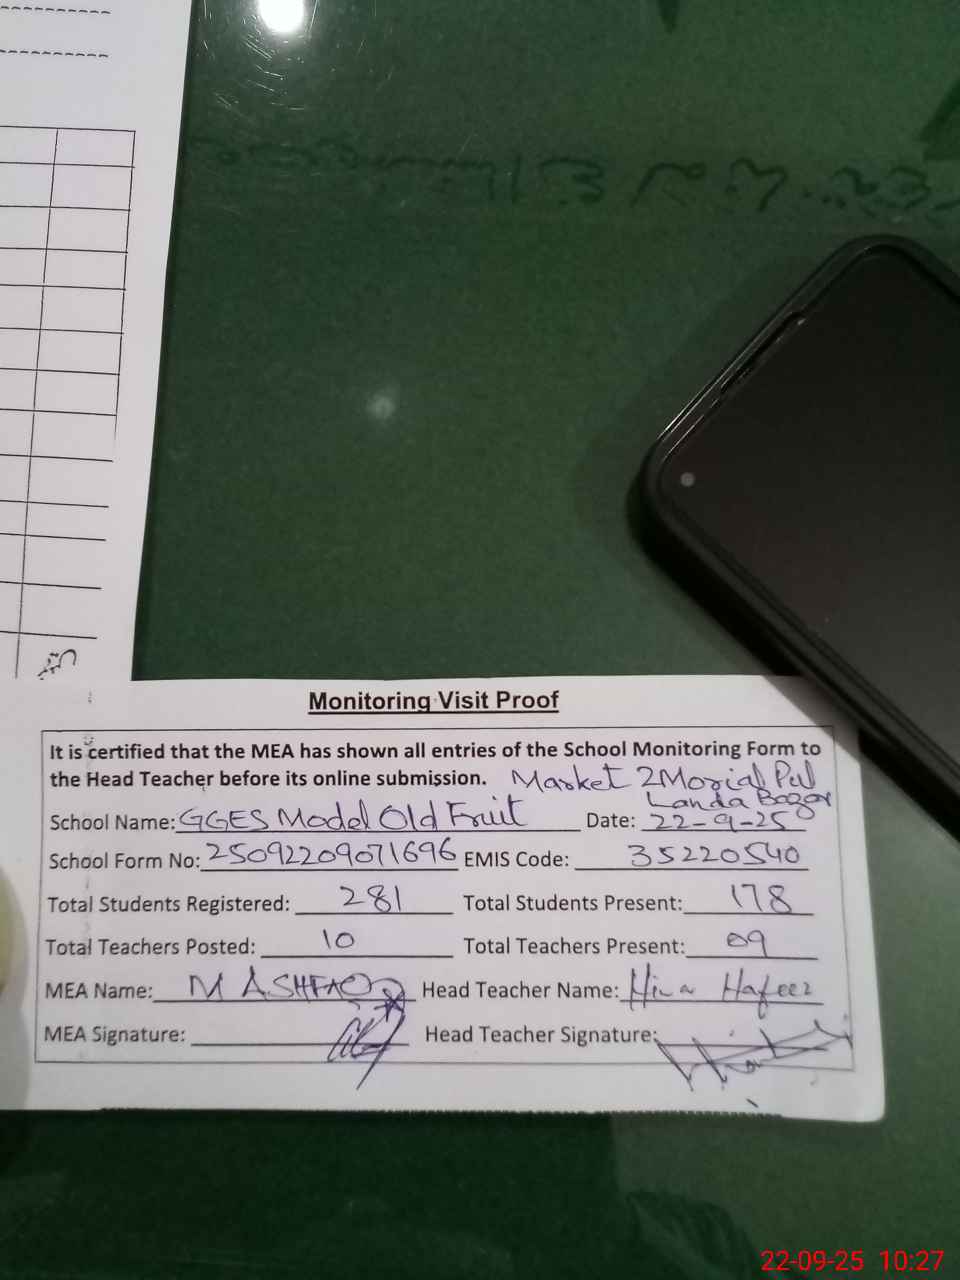 Monitoring Visit Proof
It is certified that the MEA has shown all entries of the School Monitoring Form to
the Head Teacher before its online submission. Market 2Morial Pul
Landa Bazar
School Name: GGES Model Old Fruit Date: 22-9-25
School Form No: 25092209071696 EMIS Code: 35220540
Total Students Registered: 281 Total Students Present: 178
Total Teachers Posted: 10 Total Teachers Present: 09
MEA Name: M ASHFAQ Head Teacher Name: Hina Hafeez
MEA Signature: Head Teacher Signature:
22-09-25 10:27